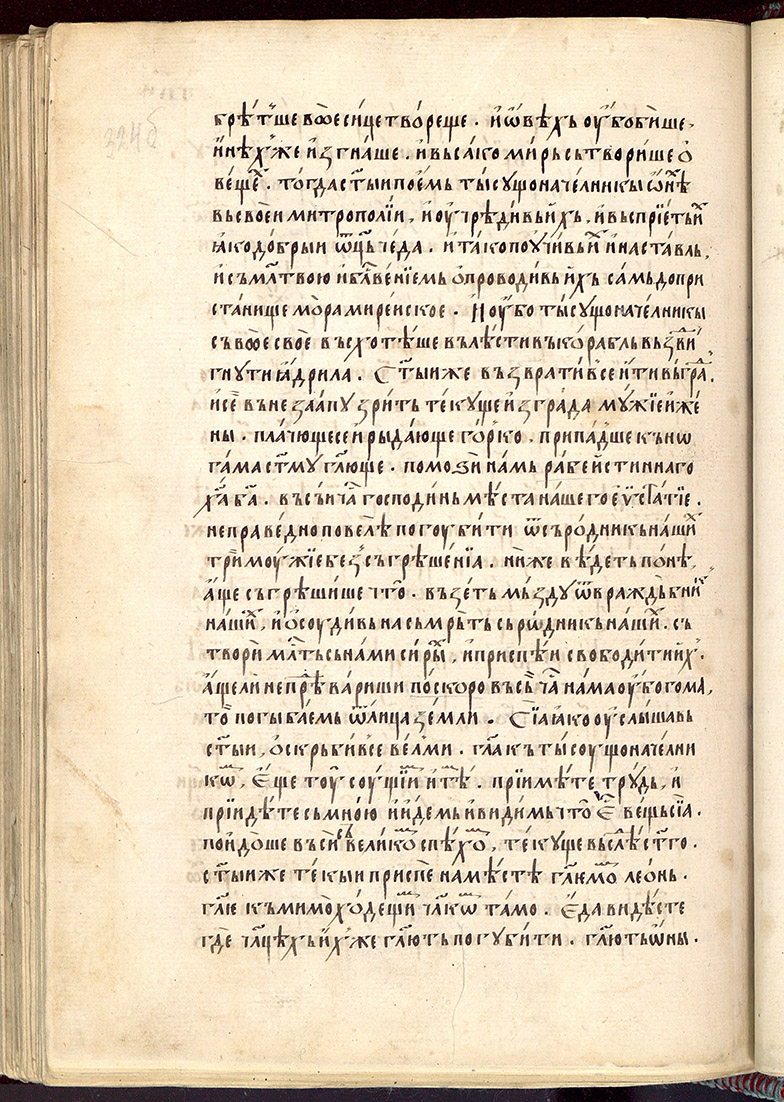 брѣ́тше воѥ си́це тво́реще . и҆ ѡ҆вѣ́хъ оу҆бо би́ше ,
и҆нѣ́х же и҆згна́ше . и҆ въсако ми́рь сътво́рише о҆
ве́щеⷯ . то́гда ст҃ыи по́емь ты́сущона́че́лникы ѡ҆нѣ
въ своеи митропо́лїи , и҆ оу҆чрѣ́дивь и҆хъ , и҆ въсприетъ иⷯ
ꙗ҆ко до́брыи ѿц҃ь че́да . и҆ та́ко поу́чивь иⷯ и҆ наста́вль ,
и҆ съ мл҃твою и҆ блⷭ҇ве́нїемь о҆проводи́вь и҆хъ самь до при
ста́нище мо́ра мире́иское . И҆ оу҆бо ты́сущона́че́лникы
съ воѥ своѐ въсхо́тѣше вълѣ́сти въ ко́рабль възⷣви́
гнути ꙗ҆́дрила . Ст҃ыи же възврати́в се и҆ти въ граⷣ .
и҆ се̑ въне заапу зри́ть те́куще и҆з гра́да му́жїе и҆ же́
ны . пла́чющесе и҆ рыда́юще го́рко . припа́дше къ нѡ
га́ма ст҃му гл҃юще . помоѕи́ намь ра́бе и҆стиннаго
хⷭ҇а бг҃а . въ сьи чаⷭ҇ господи́нь мѣ́ста на́шего еѵ҆ста́тїе .
непра́ве́дно повелѣ̀ погоу́бити ѿ съро́дникь на́шиⷯ
три̑ моу́жїе без съгрѣше́нїа . ни́же вѣ́деть поне́ ,
а҆́ще съгрѣши́ше что̀ . възе́ть мъзду ѿ враждьбниⷯ
на́шиⷯ , и҆ о҆соуди́вь на съмрьть сьро́дникь на́шиⷯ . съ
твори̑ млⷭ҇ть сь на́ми си́рыⷯ , и҆ приспѣ́и свободи́ти иⷯ .
а҆́ще ли не прѣ̀вариши по́скоро въ сьⷪ ча̑ на́ма оу҆бо́гома ,
то̀ погыба́емь ѿ ли́ца зе́мли . Сїа ꙗ҆ко оу҆слы́шавь
ст҃ыи , о҆скрьби́в се ве́лми . гл҃а къ ты́соущона́че́лни
кѡⷨ , Е҆ще тоу̀ соу́щїиⷨ и҆ тѣⷨ . прїимѣ́те трудь , и҆
прїидѣ́те съ мно́ю и҆ и҆́демь и҆ ви́димь что̀ е҆ⷭ҇ ве́щь сїа .
пои҆до́ше въси̑ съ вели́коⷨ спѣ́хоⷨ , те́куще въ слѣⷣ ст҃го .
ст҃ыи же те́кыи приспе̑ на мѣ́стѐ гл҃емоⷨ лео́нь .
гл҃ѥ къ мимохо́дещиⷨ чл҃кѡⷨ та́мо . Е҆да ви́дѣсте
гдѐ чл҃цѣ́хь и҆́х же гл҃ють погу́бити . гл҃ють ѡ҆ны .